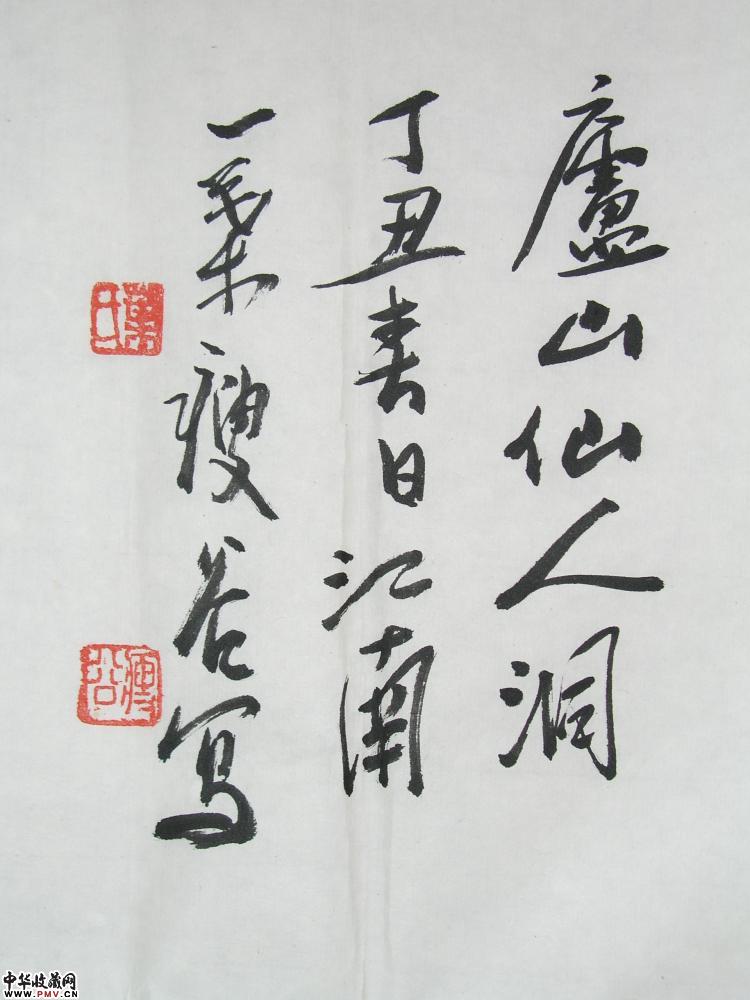 廬山仙人洞
丁丑春日江南
一葉瘦谷写
葉氏
瘦谷
中华收藏网
WWW.PMV.CN